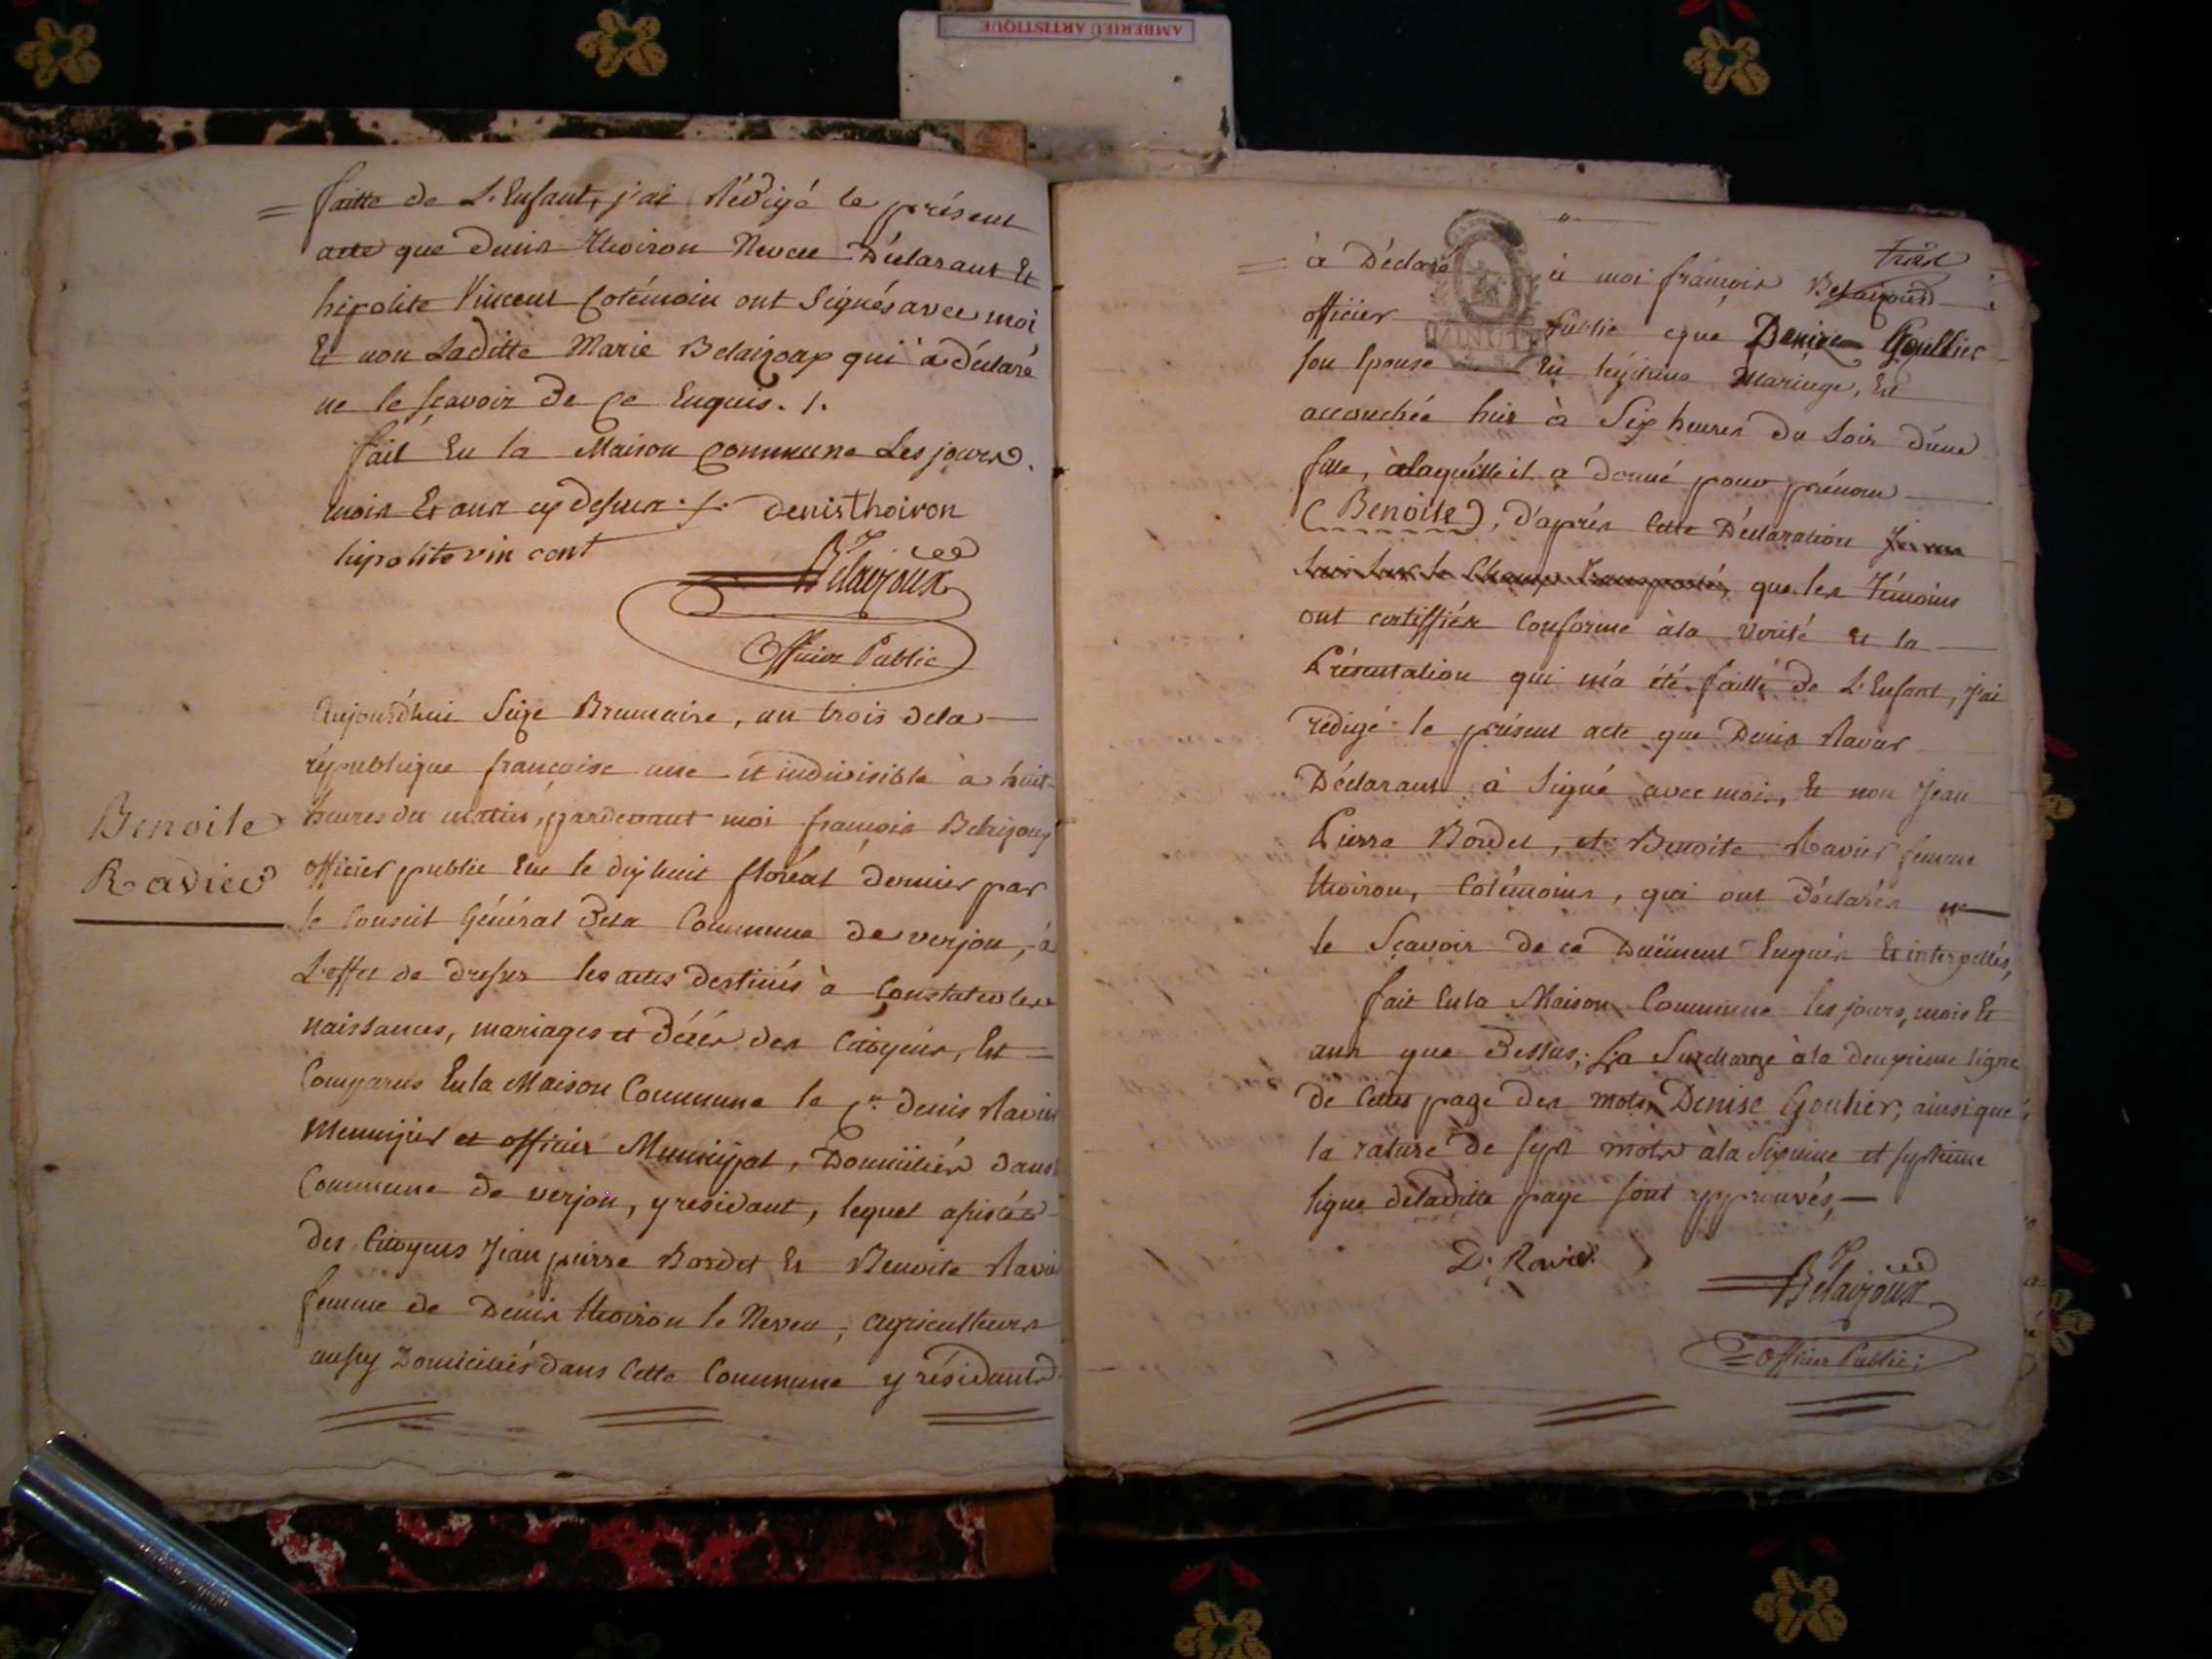 AMBERIEU ARTISTIQUE
= faitte de L'Enfant, j'ai Rédigé le présent
acte que Denis Thoiron Neveu Déclarant Et
hipolite Vincent Cotémoin ont Signés avec moi
Et non Laditte Marie Belaizoux qui à déclaré
ne le sçavoir De Ce Enquis. /.
fait En la Maison commune Les jours
mois Et ans cy dessus ./. denis thoiron
hipolite vin cent
Belaizoux
Officier Public
Benoite
Ravier
Aujourd'hui Seize Brumaire, an trois dela
république françoise une et indivisible à huit
heures du matin, pardevant moi françois Belaizoux
officier public Elu le dix huit floréal dernier par
le Conseil Général Dela Commune de verjon, à
L'effet de dresser les actes destinés à Constater les
naissances, mariages et Décés des Citoyens, Est
Comparus En la Maison Commune le Cn. Denis Ravier
Meunijer et officier Municipal, Domiciliés dans
Commune de verjon, y residant, lequel assistés
des Citoyens Jean pierre Bordet Et Benoite Ravier
femme de Denis thoiron le Neveu, agriculteurs
aussy Domiciliés dans Cette Commune y résidants
trois
= à Déclaré à moi françois Belaizoux
MINUTE
officier Public que Denise Goullier
son Epouse En légitime Mariage, Est
accouchée hier à Six heures du Soir d'une
fille, à laquélle il a donné pour prénom
(Benoite), d'aprés Cette Déclaration Je me
suis sur le Champ transporté, que les Témoins
ont certiffiés Conforme àla Verité Et la
Présentation qui m'a été faitte De L'Enfant, J'ai
rédigé le présent acte que Denis Ravier
Déclarant à Signé avec moi, Et non Jean
Pierre Bordet, et Benoite Ravier femme
thoiron, Cotémoins, qui ont Déclarés ne
le Sçavoir de ce Duëment Enquis Et interpellés,
fait En la Maison Commune les jours, mois Et
ans que Dessus; La Surcharge àla deuxieme ligne
de Cette page des mots, Denise Goulier, ainsi que
la rature de sept mots àla Sixieme et septieme
ligne deladitte page sont approuvés,
D. Ravier
Belaizoux
Officier Public;